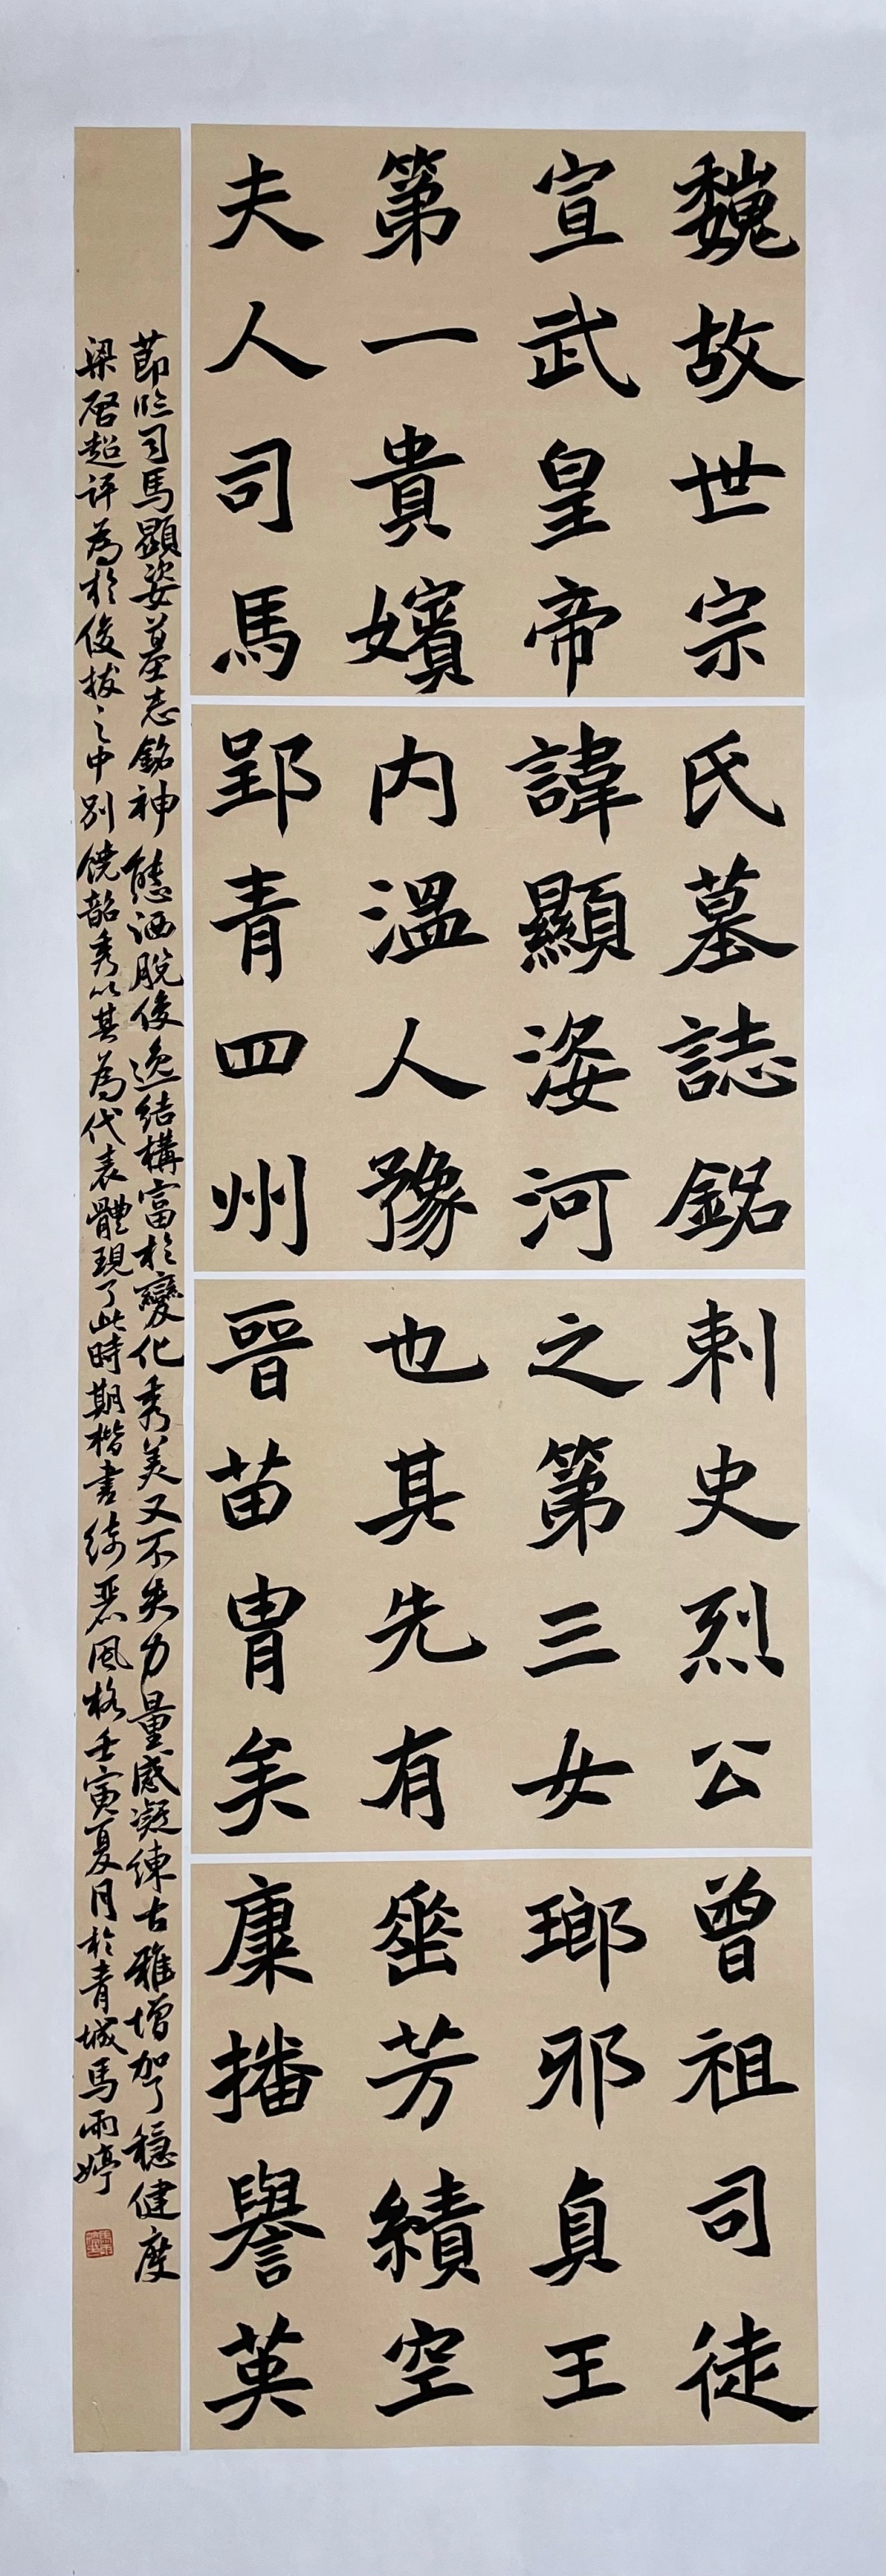 魏故世宗
宣武皇帝
第一貴嬪
夫人司馬
氏墓誌銘
諱顯姿河
内温人豫
郢青四州
刺史烈公
之第三女
也其先有
晉苗胄矣
曾祖司徒
瑯邪貞王
垂芳績空
康播譽英
節臨司馬顯姿墓志銘神態洒脫俊逸結構富於變化秀美又不失力量感凝練古雅增加了穩健度
梁啓超評為於俊拔之中别饒韶秀以其為代表體現了此時期楷書綺麗風格壬寅夏月於青城馬雨婷